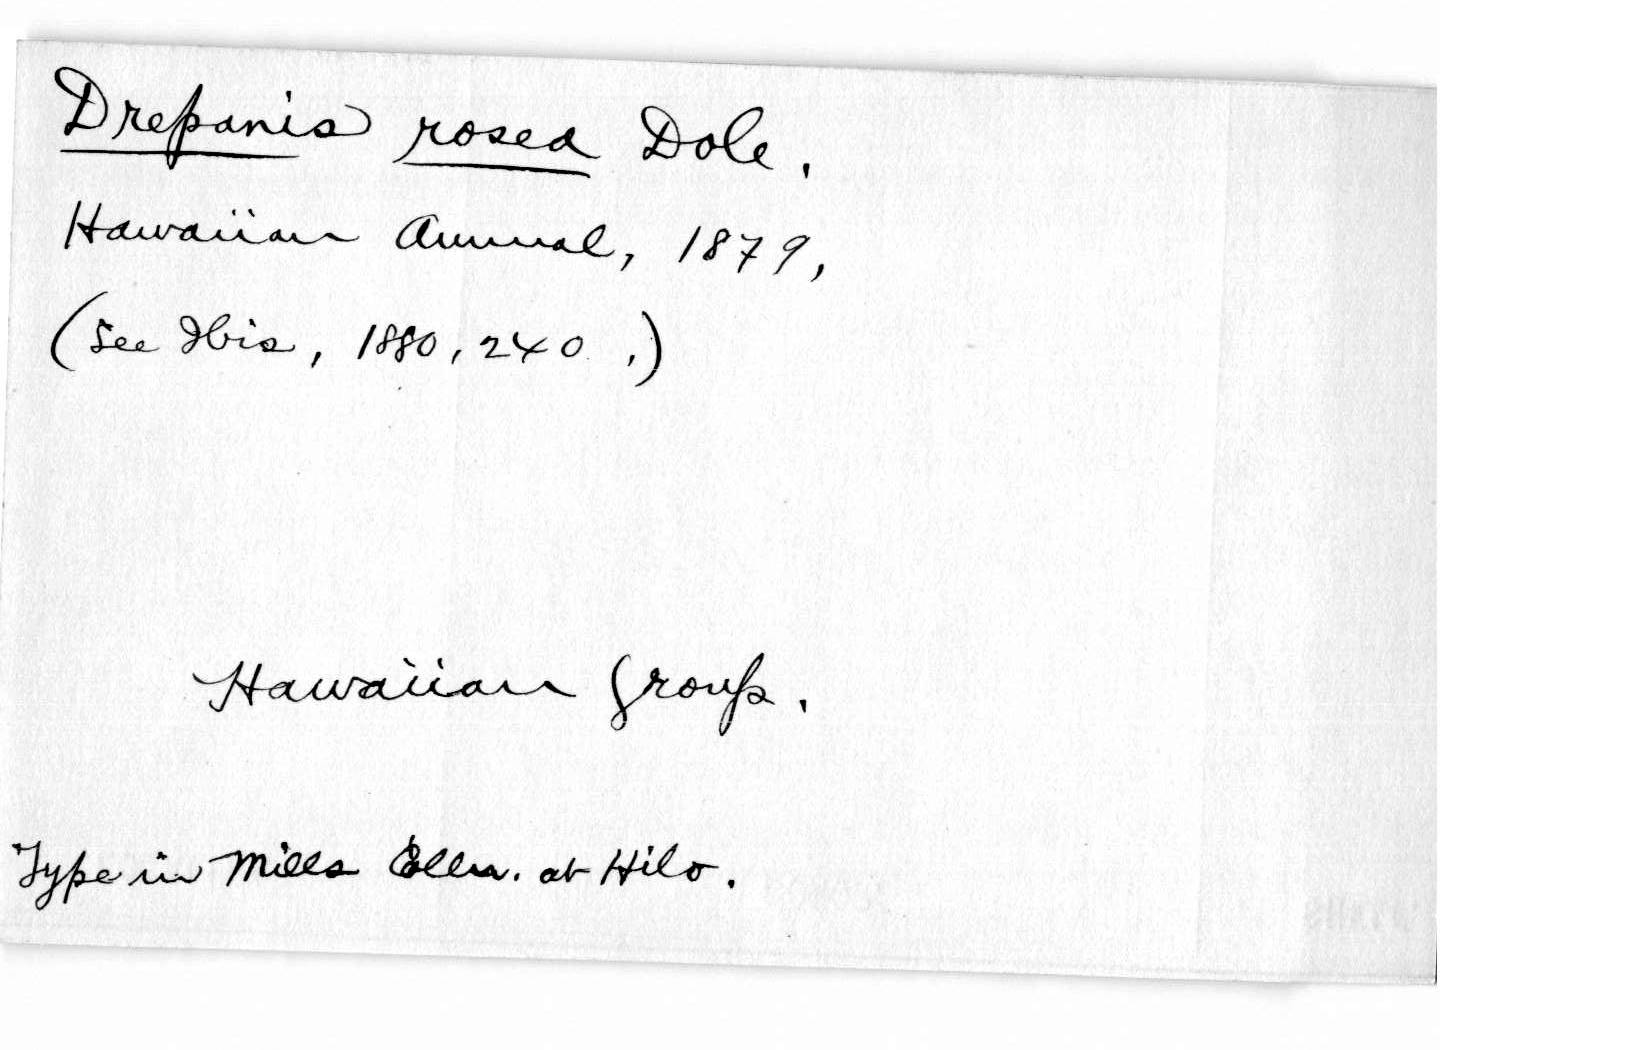 Drepanis rosea Dole.
Hawaiian Annual, 1879,
(See Ibis, 1880, 240.)
Hawaiian Group.
Type in Mills Colln. at Hilo.